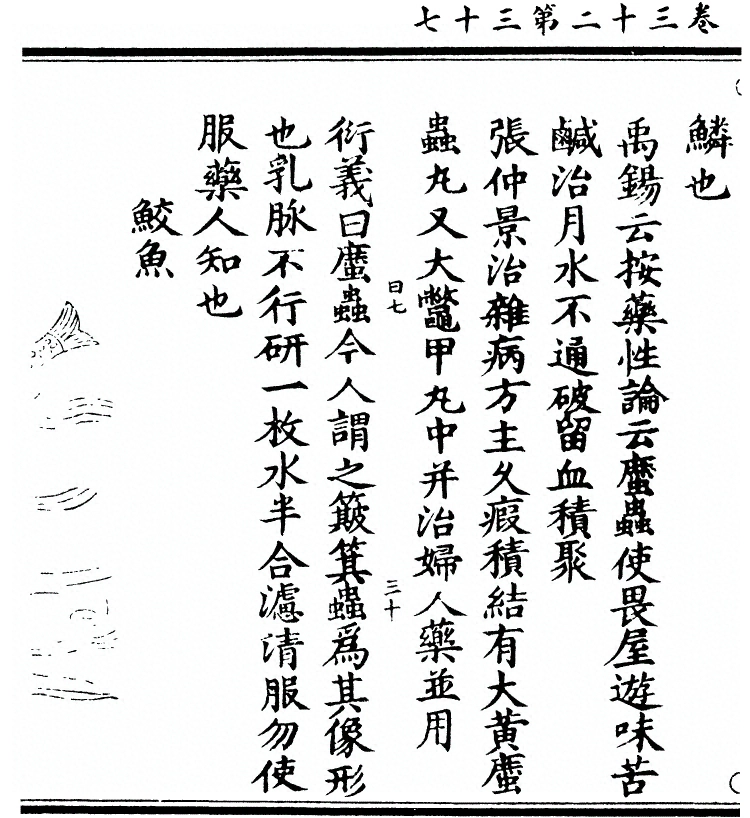 卷三十二第三十七
鱗也
禹錫云按藥性論云䗪蟲使畏屋遊味苦
鹹治月水不通破留血積聚
張仲景治雜病方主久瘕積結有大黃䗪
蟲丸又大鼈甲丸中并治婦人藥並用
曰七
三十
衍義曰䗪蟲今人謂之簸箕蟲爲其像形
也乳脉不行研一枚水半合濾清服勿使
服藥人知也
鮫魚